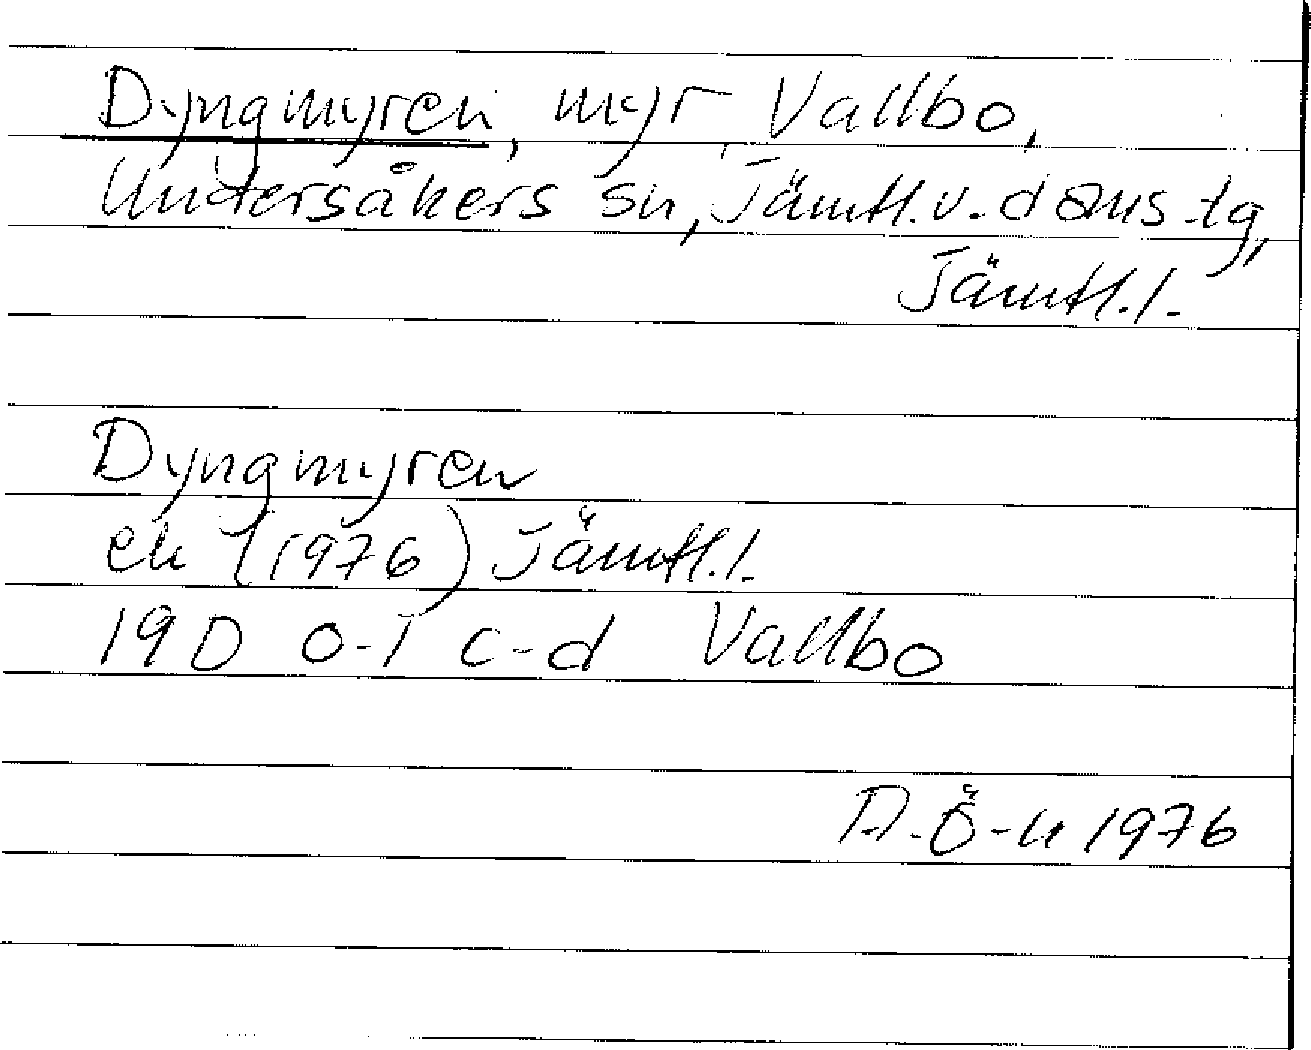 Dyngmyren, myr, Vallbo,
Undersåkers sn, Jämtl. v. doms.tg,
Jämtl. l.
Dyngmyren
ek (1976) Jämtl. l.
19D 0-1 c-d Vallbo
A.Ö-n 1976